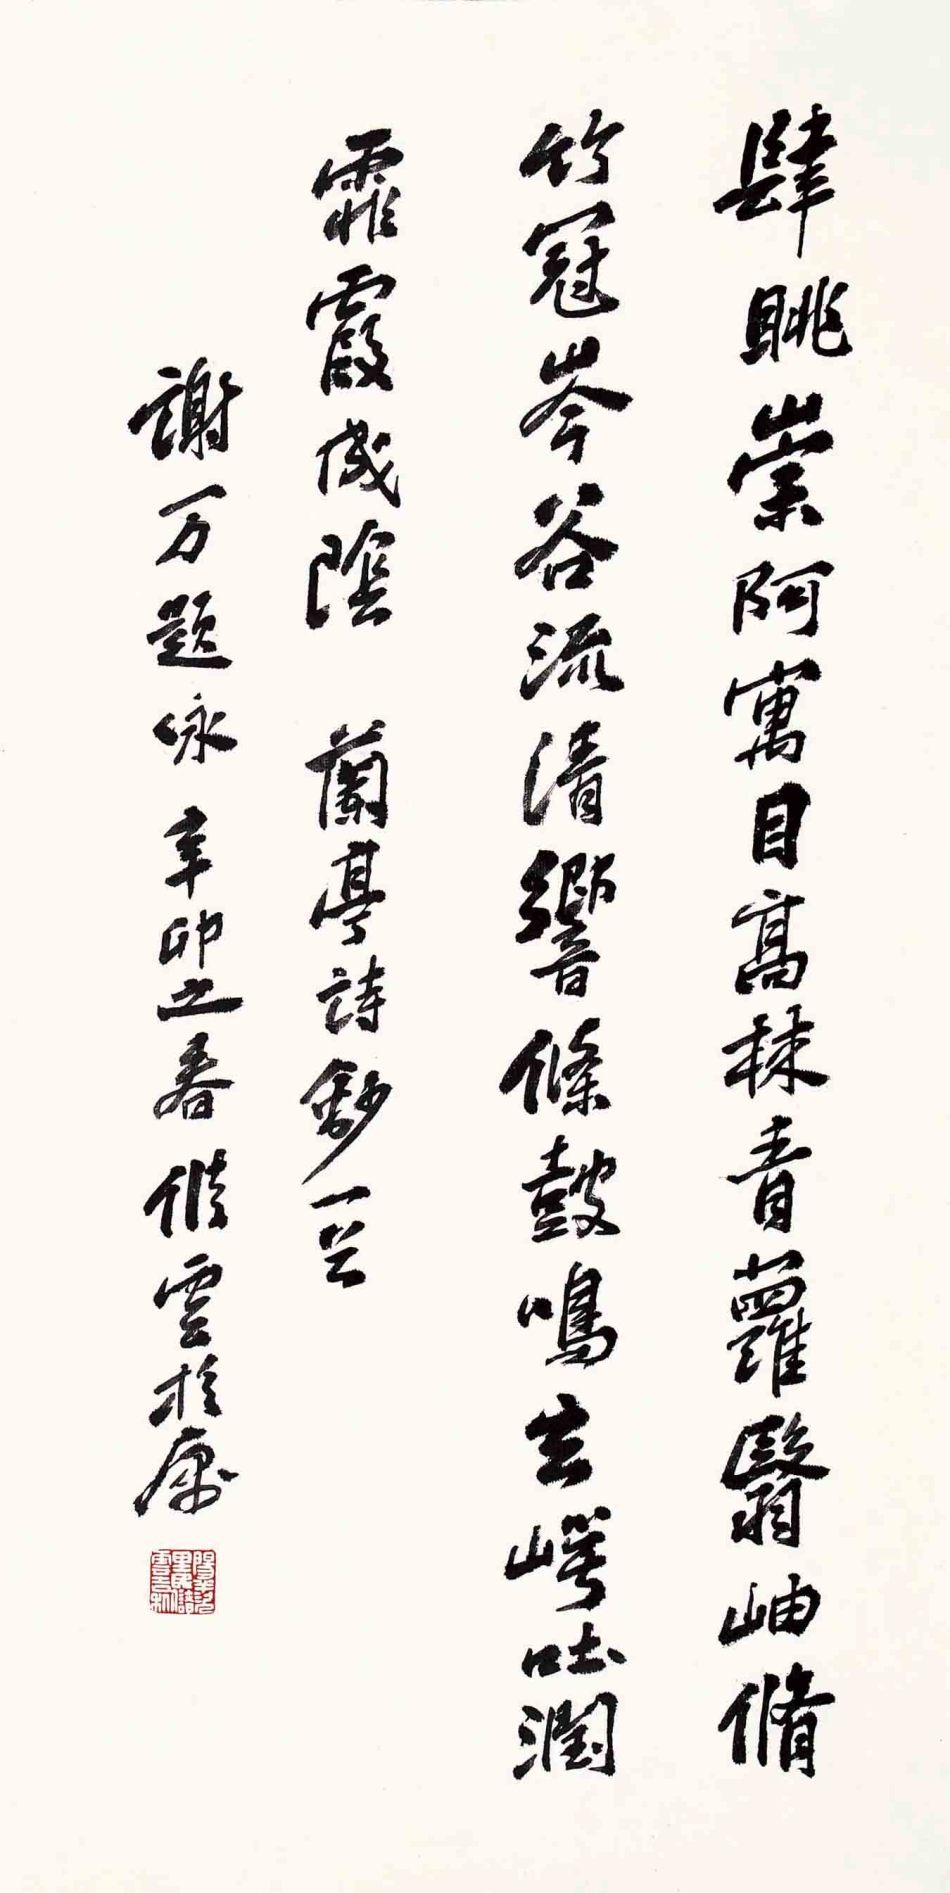 肆眺崇阿寓目高林青蘿翳岫脩
竹冠岑谷流清響條鼓鳴玄崿吐潤
霏霧成陰　蘭亭詩鈔一首
謝万題咏辛卯之春脩雲於